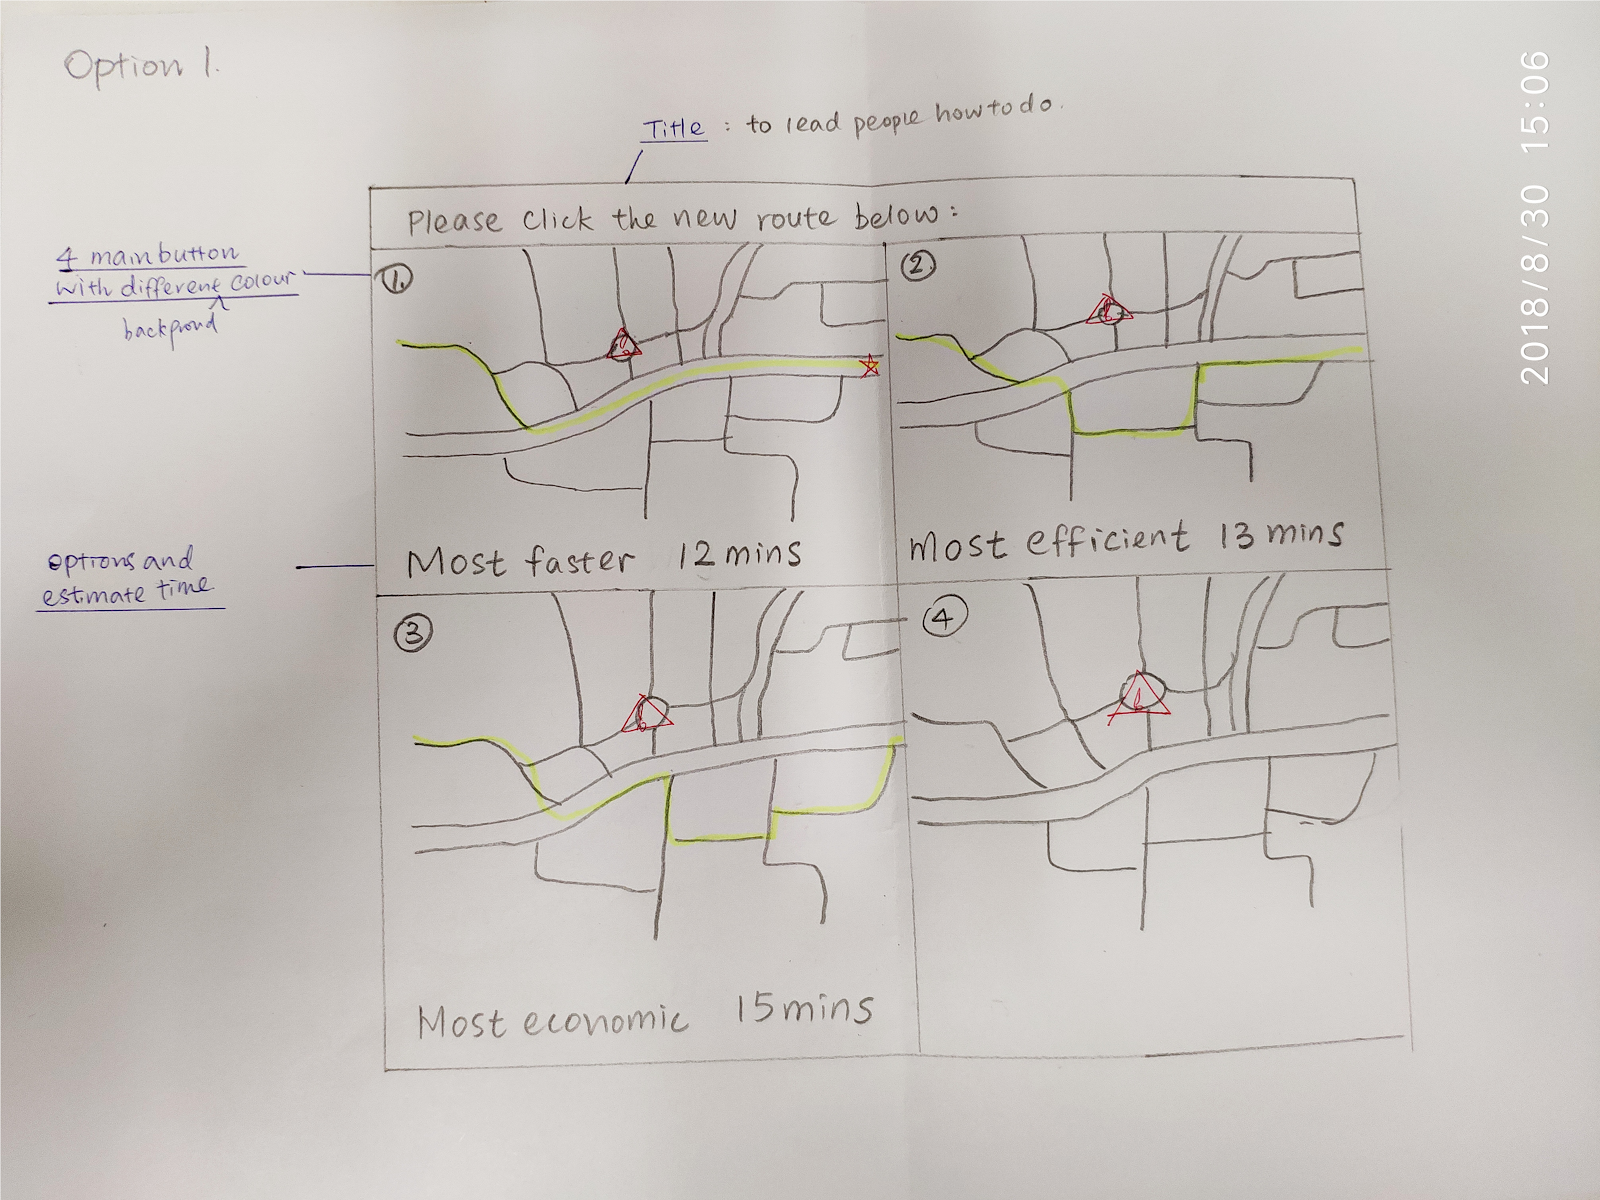 Option 1.
Title : to lead people how to do.
Please click the new route below:
4 main button
with different colour
backgroud
1.
2
Most faster 12 mins
Most efficient 13 mins
options and
estimate time
3
4
Most economic 15 mins
2018/8/30 15:06